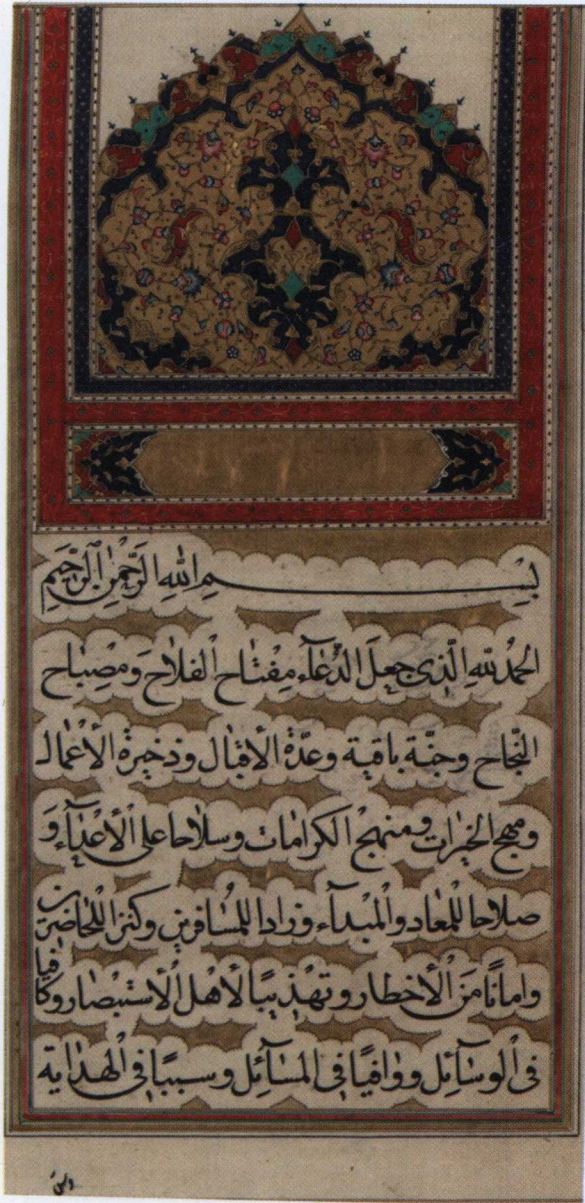 بِسْمِ اللهِ الرَّحْمٰنِ الرَّحِيمِ
الحمدُ للهِ الَّذى جعلَ الدُّعٰآء مِفْتٰاح اَلفلاٰحَ ومصِبٰاح
النَّجٰاح وجنّة باقية وعدّة الأقبٰال وذخيرة الأَعْمٰال
ومهج الخيرٰات ومنهج الكرٰامٰات وسلاٰحا على اْلأعدٰآء وَ
صلاٰحا للمعٰاد والْمبدٰآء وزادا للمُسٰافرين وكنزا للحٰاضرين
وامٰانًا مَن اْلأخطٰار وتهْذيبًا لأهل اْلأستبصٰار وكٰافيا
فى اْلوسٰآئل ووٰافيًا فى المسٰآئل وسببًا فى الْهدٰاية